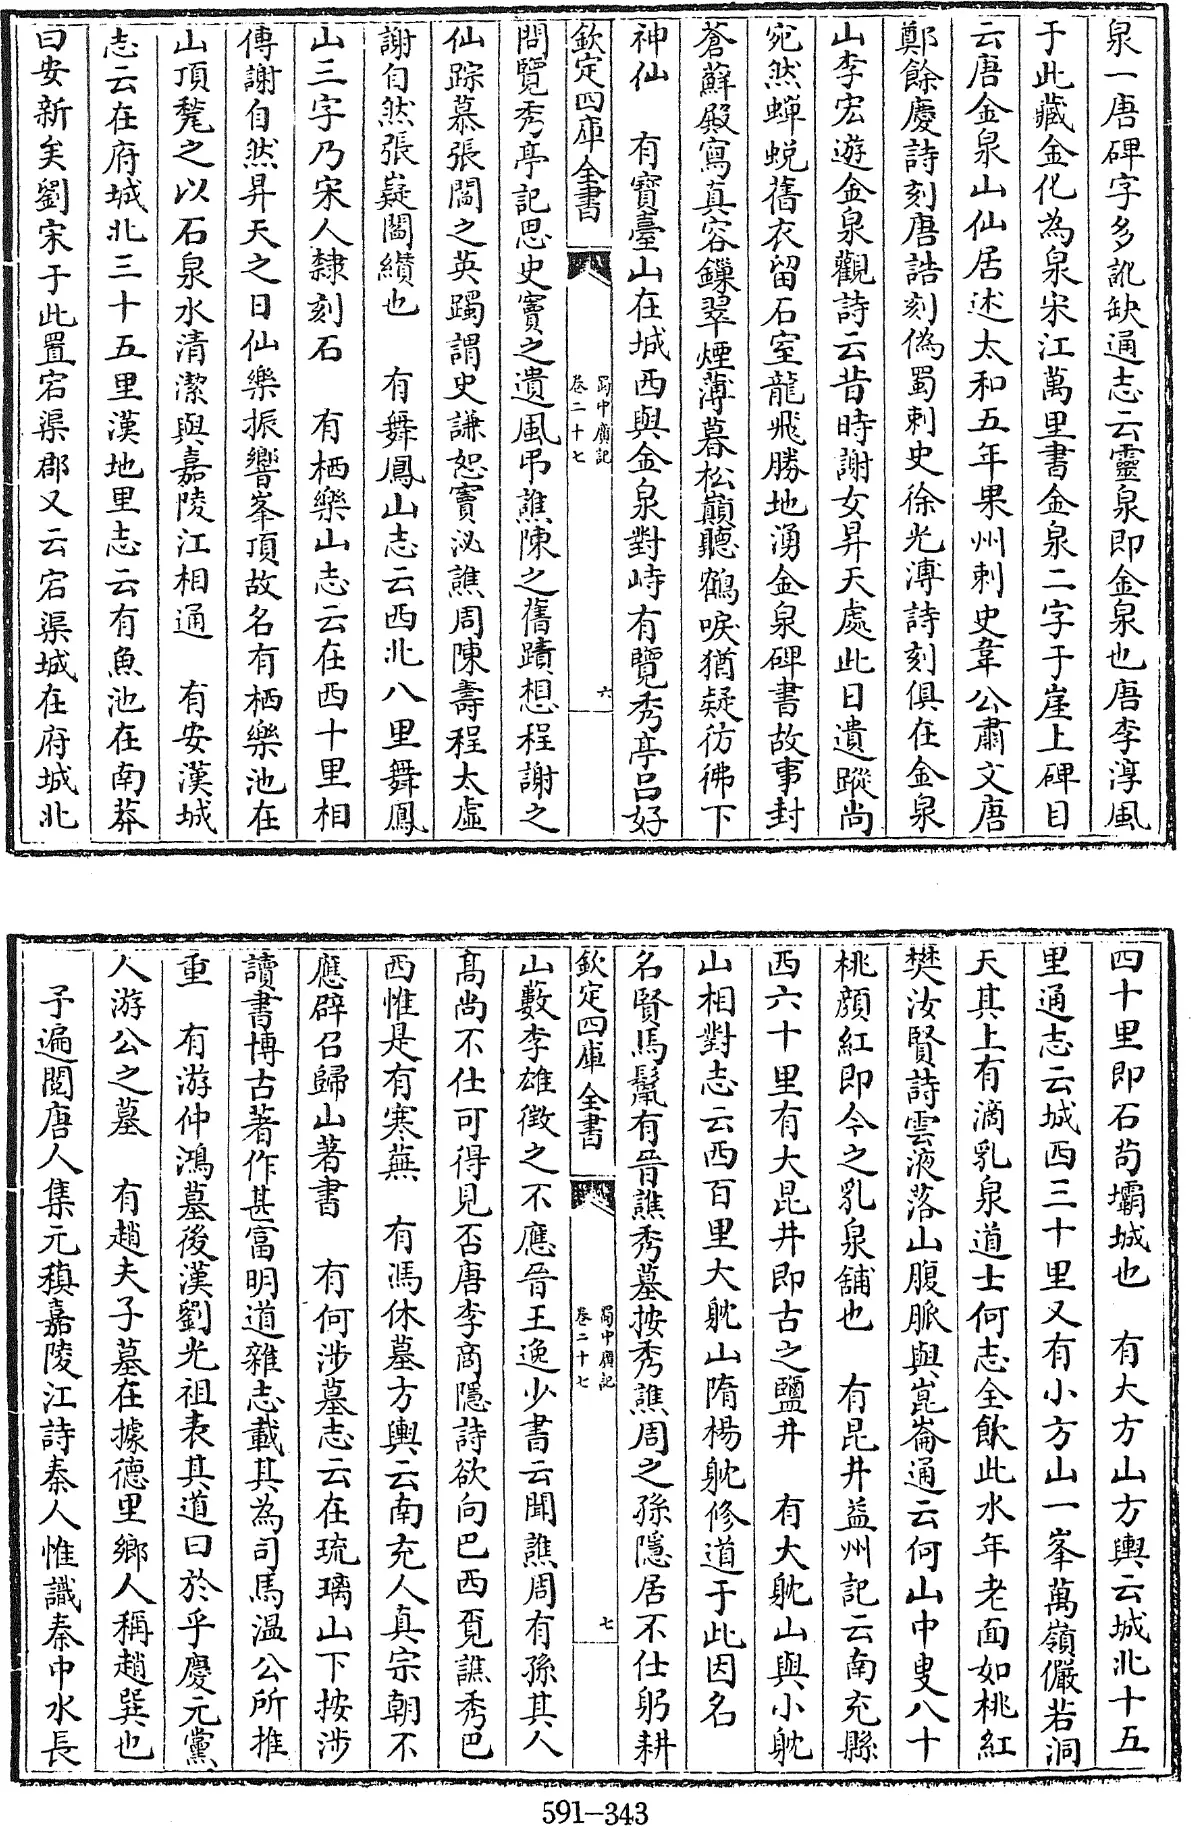 泉一唐碑字多訛缺通志云靈泉即金泉也唐李淳風
于此藏金化為泉宋江萬里書金泉二字于崖上碑目
云唐金泉山仙居述太和五年果州刺史韋公肅文唐
鄭餘慶詩刻唐誥刻偽蜀刺史徐光溥詩刻俱在金泉
山李宏遊金泉觀詩云昔時謝女昇天處此日遺蹤尚
宛然蟬蛻舊衣留石室龍飛勝地湧金泉碑書故事封
蒼蘚殿寫真容鏁翠煙薄暮松巔聽鶴唳猶疑彷彿下
神仙　有寶臺山在城西與金泉對峙有覽秀亭呂好
欽定四庫全書　蜀中廣記卷二十七　六
問覽秀亭記思史竇之遺風弔譙陳之舊蹟想程謝之
仙踪慕張閬之英躅謂史謙恕竇泌譙周陳壽程太虛
謝自然張嶷閻纘也　有舞鳳山志云西北八里舞鳳
山三字乃宋人隸刻石　有栖樂山志云在西十里相
傳謝自然昇天之日仙樂振響峯頂故名有栖樂池在
山頂甃之以石泉水清潔與嘉陵江相通　有安漢城
志云在府城北三十五里漢地里志云有魚池在南莽
曰安新矣劉宋于此置宕渠郡又云宕渠城在府城北
四十里即石茍壩城也　有大方山方輿云城北十五
里通志云城西三十里又有小方山一峯萬嶺儼若洞
天其上有滴乳泉道士何志全飲此水年老面如桃紅
樊汝賢詩雲液落山腹脈與崑崙通云何山中叟八十
桃顏紅即今之乳泉舖也　有昆井益州記云南充縣
西六十里有大昆井即古之鹽井　有大躭山與小躭
山相對志云西百里大躭山隋楊躭修道于此因名
名賢馬鬣有晉譙秀墓按秀譙周之孫隱居不仕躬耕
欽定四庫全書　蜀中廣記卷二十七　七
山藪李雄徵之不應晉王逸少書云聞譙周有孫其人
髙尚不仕可得見否唐李商隱詩欲向巴西覓譙秀巴
西惟是有寒蕪　有馮休墓方輿云南充人真宗朝不
應辟召歸山著書　有何涉墓志云在琉璃山下按涉
讀書博古著作甚富明道雜志載其為司馬溫公所推
重　有游仲鴻墓後漢劉光祖表其道曰於乎慶元黨
人游公之墓　有趙夫子墓在據德里鄉人稱趙巽也
予遍閱唐人集元稹嘉陵江詩秦人惟識秦中水長
591-343